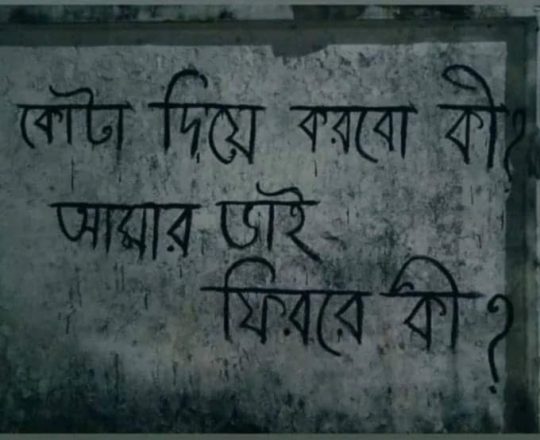 কোটা দিয়ে করবো কী?
আমার ভাই
ফিরবে কী?